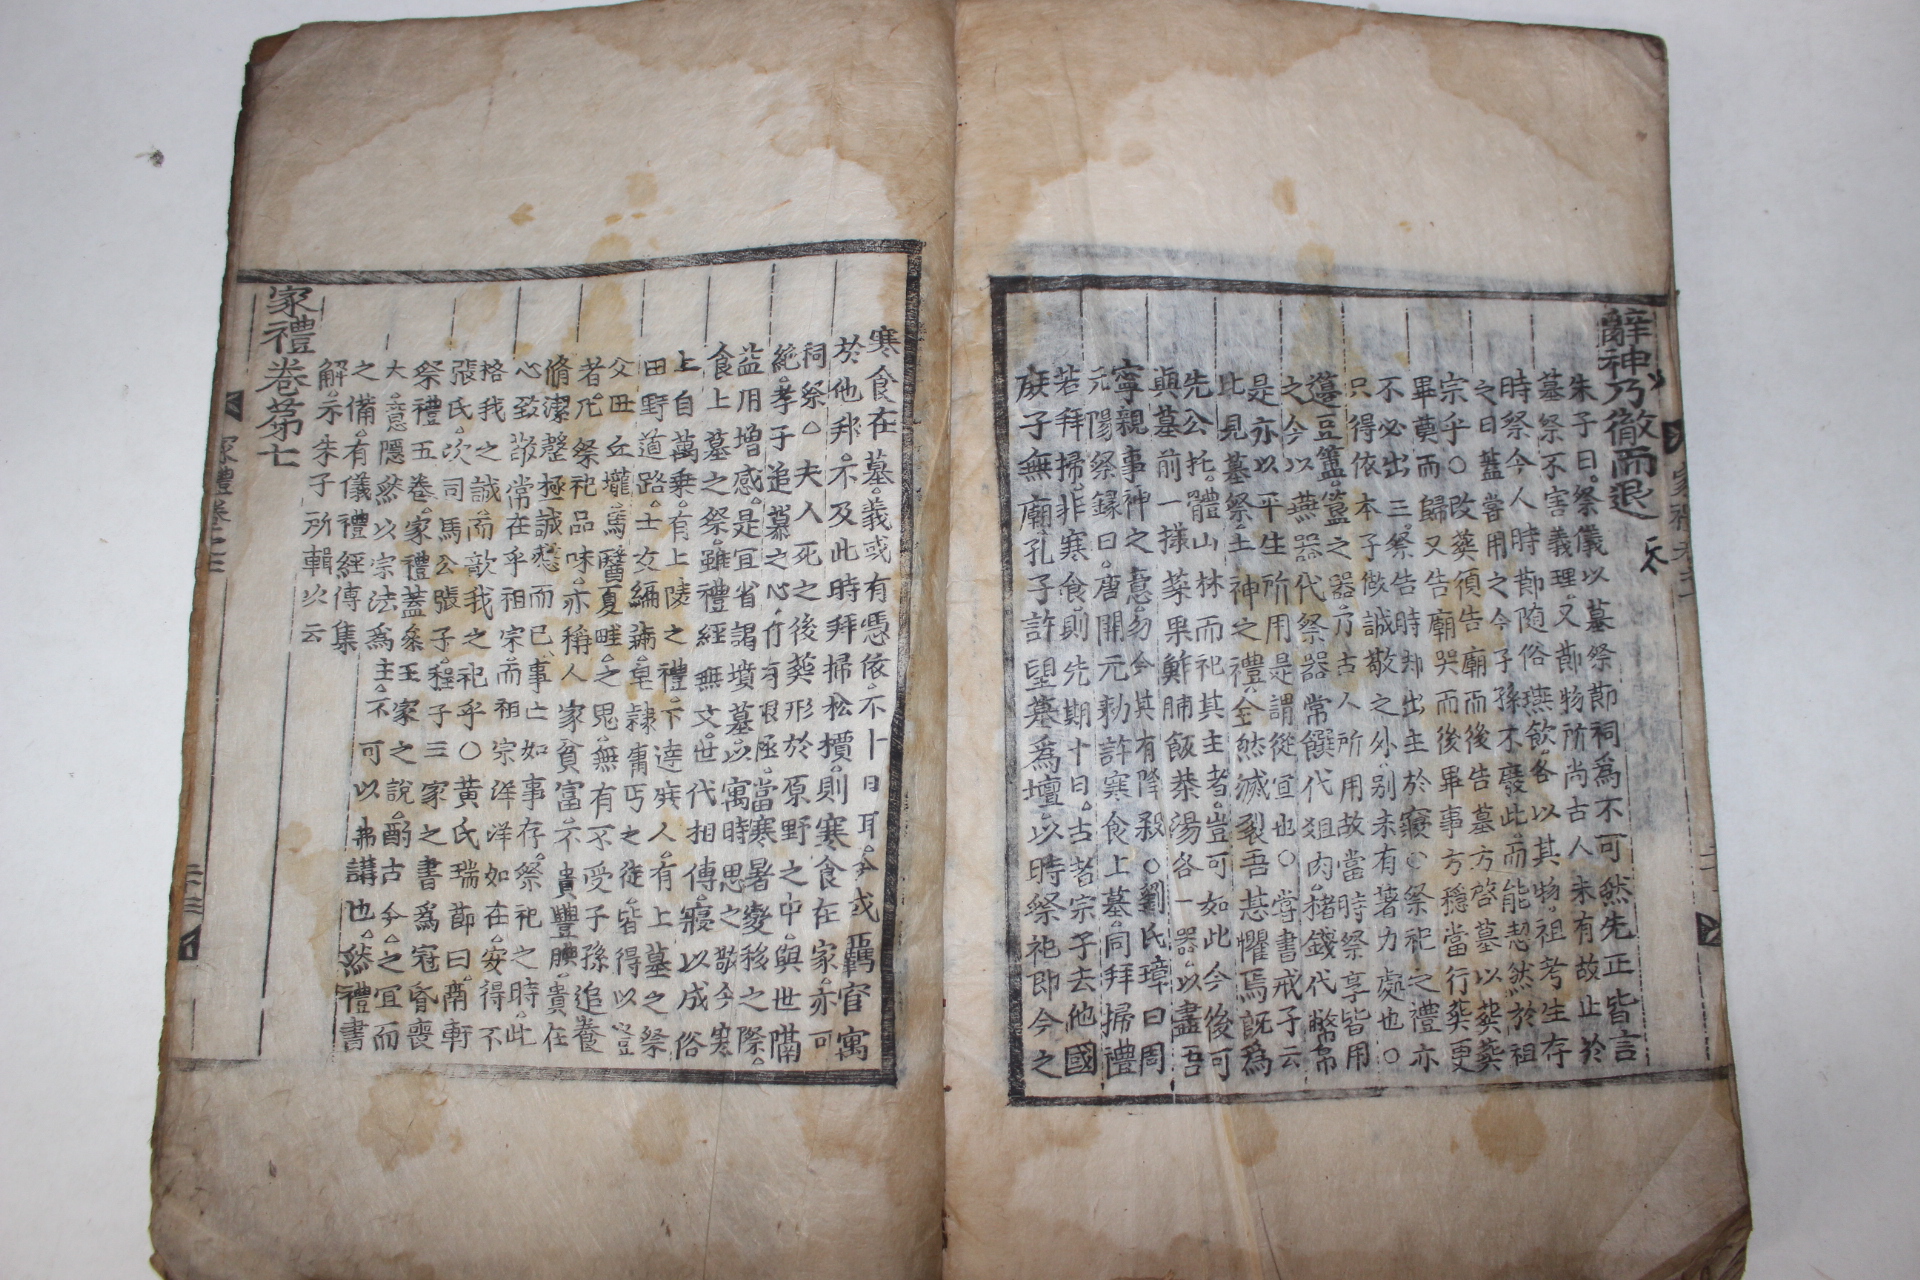 辭神乃徹而退
朱子曰祭儀以墓祭節祠爲不可然先正皆言
墓祭不害義理又節物所尚古人未有故止於
時祭今人時節隨俗燕飮各以其物祖考生存
之日蓋嘗用之今子孫不廢此而能恝然於祖
宗乎○改葬須告廟而後告墓方啓墓以葬葬
畢奠而歸又告廟哭而後畢事方穩當行葬更
不必出三祭告時却出主於寢○祭祀之禮亦
只得依本子做誠敬之外别未有著力處也○
籩豆簠簋之器乃古人所用故當時祭享皆用
之今以燕器代祭器常饌代俎肉楮錢代幣帛
是亦以平生所用是謂從宜也○嘗書戒子云
比見墓祭土神之禮全然滅裂吾甚懼焉旣爲
先公托體山林而祀其主者豈可如此今後可
與墓前一㨾菜果鮓脯飯茶湯各一器以盡吾
寧親事神之意勿令其有隆殺○劉氏璋曰周
元陽祭録曰唐開元勑許寒食上墓同拜掃禮
若拜掃非寒食則先期十日古者宗子去他國
庶子無廟孔子許望墓爲壇以時祭祀即今之
寒食在墓義或有憑依不卜日耳今或羈宦寓
於他邦不及此時拜掃松檟則寒食在家亦可
祠祭○夫人死之後葬形於原野之中與世隔
絶孝子追慕之心何有限極當寒暑變移之際
益用增感是宜省謁墳墓以寓時思之敬今寒
食上墓之祭雖禮經無文世代相傳寢以成俗
上自萬乘有上陵之禮下逹庶人有上墓之祭
田野道路士女徧滿皁隷庸丐之徒皆得以登
父母丘壠馬醫夏畦之鬼無有不受子孫追養
者凡祭祀品味亦稱人家貧富不貴豐腆貴在
脩潔罄極誠慤而已事亡如事存祭祀之時此
心致敬常在乎祖宗而祖宗洋洋如在安得不
格我之誠而歆我之祀乎○黄氏瑞節曰南軒
張氏次司馬公張子程子三家之書爲冠昏喪
祭禮五卷家禮蓋參三家之說酌古今之宜而
大意隱然以宗法爲主不可以弗講也然禮書
之備有儀禮經傳集
解示朱子所輯以云
家禮卷第七